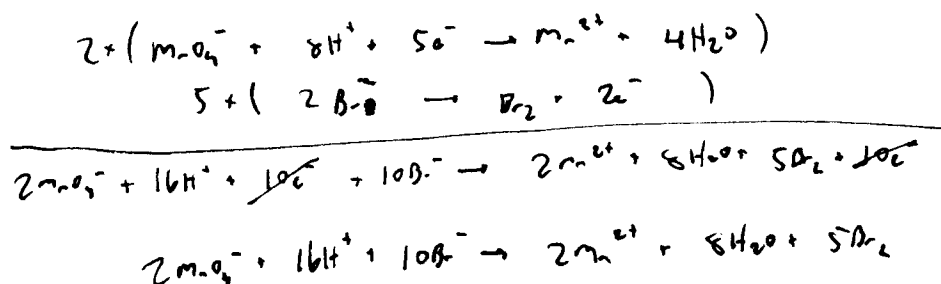 2 × ( MnO₄⁻ + 8H⁺ + 5e⁻ → Mn²⁺ + 4H₂O )
5 × ( 2Br⁻ → Br₂ + 2e⁻ )
2MnO₄⁻ + 16H⁺ + 10e⁻ + 10Br⁻ → 2Mn²⁺ + 8H₂O + 5Br₂ + 10e⁻
2MnO₄⁻ + 16H⁺ + 10Br⁻ → 2Mn²⁺ + 8H₂O + 5Br₂